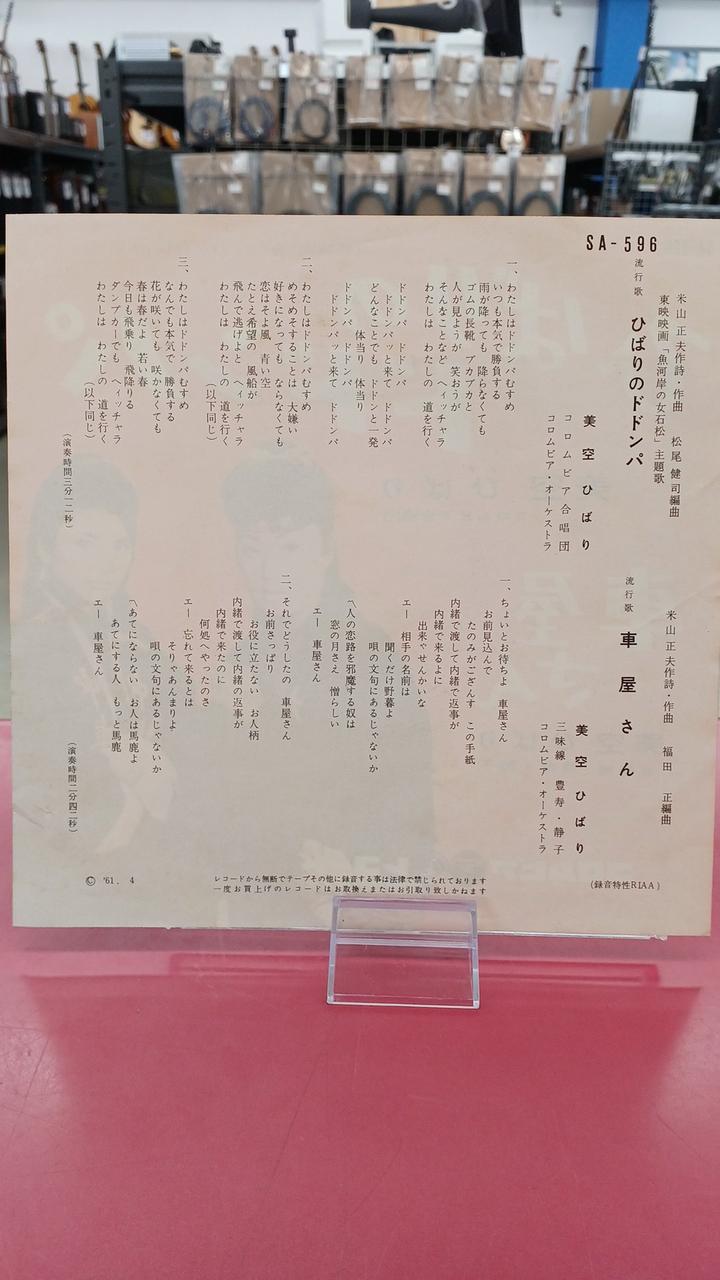 SA-596
米山正夫作詩・作曲　松尾健司編曲
東映映画「魚河岸の女石松」主題歌
流行歌　ひばりのドドンパ
美空ひばり
コロムビア合唱団
コロムビア・オーケストラ
一、わたしはドドンパむすめ
いつも本気で勝負する
雨が降っても　降らなくても
ゴムの長靴　ブカブカと
人が見ようが　笑おうが
そんなことなど　ヘイッチャラ
わたしは　わたしの　道を行く
ドドンパ　ドドンパ
ドドンパッと来て　ドドンパ
どんなことでも　ドドンと一発
体当り　体当り
ドドンパ　ドドンパ
ドドンパッと来て　ドドンパ
二、わたしはドドンパむすめ
めそめそすることは　大嫌い
好きになっても　ならなくても
恋はそよ風　青い空
たとえ希望の　風船が
飛んで逃げよと　ヘイッチャラ
わたしは　わたしの　道を行く
（以下同じ）
三、わたしはドドンパむすめ
なんでも本気で　勝負する
花が咲いても　咲かなくても
春は春だよ　若い春
今日も飛乗り　飛降りる
ダンプカーでも　ヘイッチャラ
わたしは　わたしの　道を行く
（以下同じ）
（演奏時間三分一二秒）
米山正夫作詩・作曲　福田　正編曲
流行歌　車屋さん
美空ひばり
三味線　豊寿・静子
コロムビア・オーケストラ
一、ちょいとお待ちよ　車屋さん
お前見込んで
たのみがござんす　この手紙
内緒で渡して内緒で返事が
内緒で来るよに
出来ゃせんかいな
エー　相手の名前は
聞くだけ野暮よ
唄の文句にあるじゃないか
〽人の恋路を邪魔する奴は
窓の月さえ　憎らしい
エー　車屋さん
二、それでどうしたの　車屋さん
お前さっぱり
お役に立たない　お人柄
内緒で渡して内緒の返事が
内緒で来たのに
何処へやったのさ
エー　忘れて来るとは
そりゃあんまりよ
唄の文句にあるじゃないか
〽あてにならない　お人は馬鹿よ
あてにする人　もっと馬鹿
エー　車屋さん
（演奏時間二分四二秒）
（録音特性RIAA）
レコードから無断でテープその他に録音する事は法律で禁じられております
一度お買上げのレコードはお取換えまたはお引取り致しかねます
© '61. 4